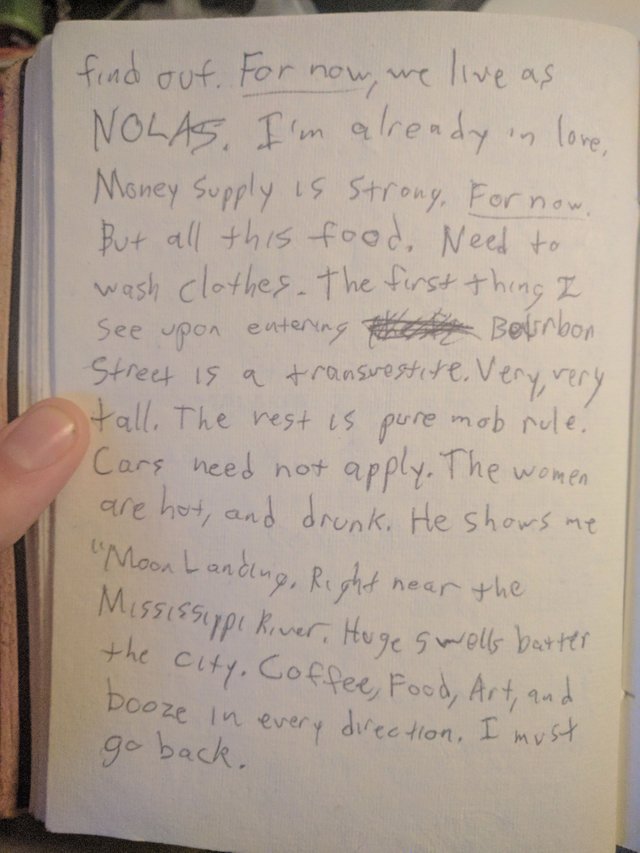 find out. For now, we live as
NOLAS. I'm already in love.
Money supply is strong. For now.
But all this food. Need to
wash clothes. The first thing I
see upon entering Bourbon
Street is a transvestite. Very, very
tall. The rest is pure mob rule.
Cars need not apply. The women
are hot, and drunk. He shows me
"Moon Landing. Right near the
Mississippi River. Huge swells batter
the city. Coffee, Food, Art, and
booze in every direction. I must
go back.